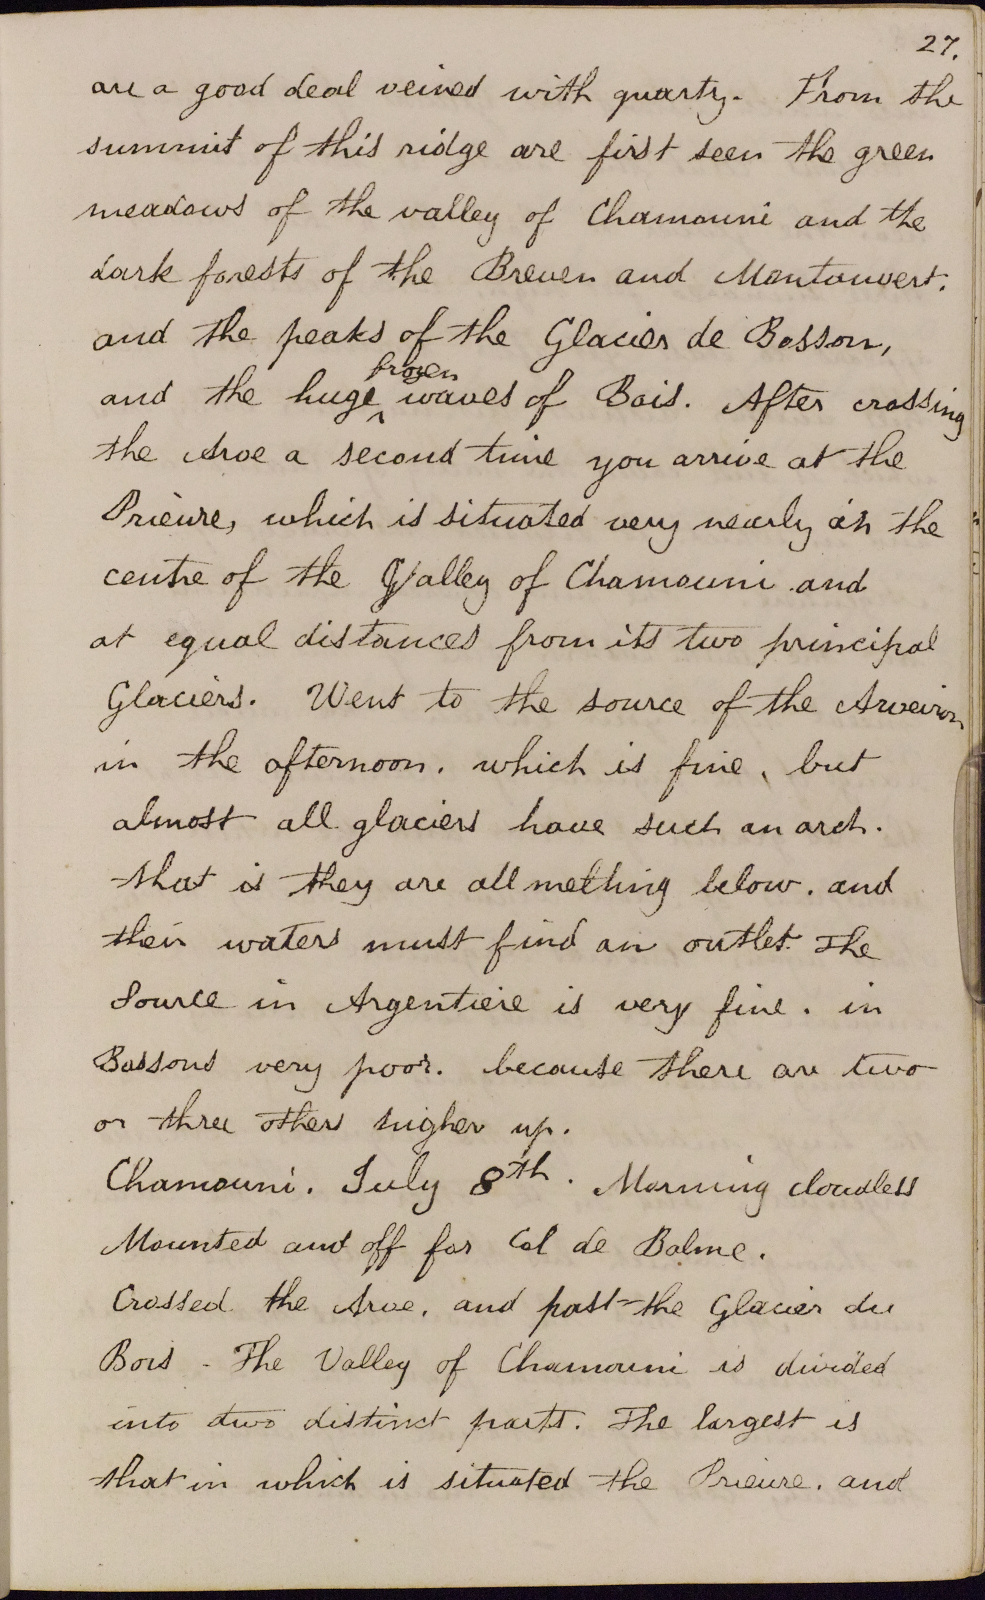 27.
are a good deal veined with quartz. From the
summit of this ridge are first seen the green
meadows of the valley of Chamouni and the
dark forests of the Breven and Montanvert.
and the peaks of the Glacier de Bosson,
frozen
and the huge ^ waves of Bois. After crossing
the Arve a second time you arrive at the
Prieure, which is situated very nearly in the
centre of the Valley of Chamouni and
at equal distances from its two principal
Glaciers. Went to the source of the Arveiron
in the afternoon. which is fine, but
almost all glaciers have such an arch.
that is they are all melting below. and
their waters must find an outlet. The
Source in Argentiere is very fine. in
Bossons very poor. because there are two
or three others higher up.
Chamouni. July 8th. Morning cloudless
Mounted and off for Col de Balme.
Crossed the Arve. and past the Glacier du
Bois - The Valley of Chamouni is divided
into two distinct parts. The largest is
that in which is situated the Prieure. and